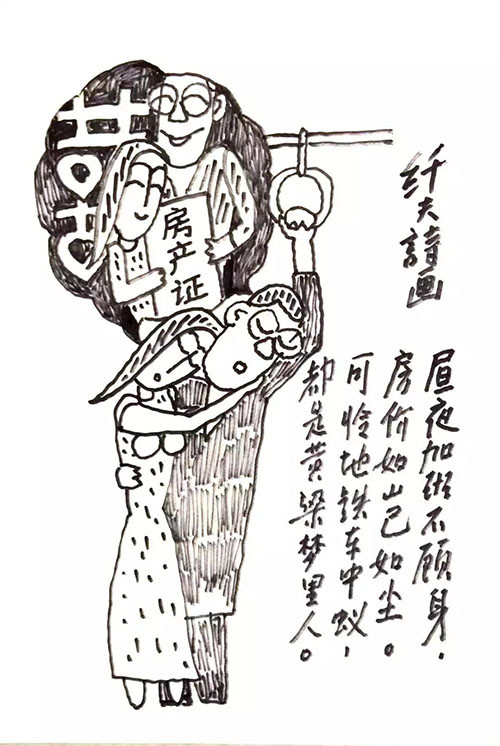 囍
房产证
纤夫詩画
昼夜加班不顾身，
房价如山己如尘。
可怜地铁车中蚁，
都是黄粱梦里人。